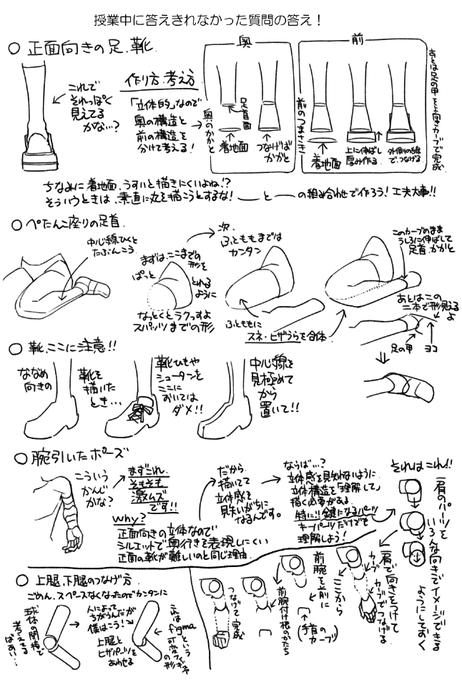 授業中に答えきれなかった質問の答え！
○ 正面向きの足、靴．
これで
それっぽく
見えてる
かな…？
作り方、考える
「立体的」なので
奥の構造と
前の構造を
分けて考える！
奥
奥のかかと
足首面
着地面
つなげば
かかと
前
前のつまさき
着地面
上に伸ばし
厚み作る
外側の線
でつなげる
あとは足の甲を上向きカーブで完成
ちなみに着地面、うすいと描きにくいよね！？
そういうときは、素直に丸を描こうとするな！
の組み合わせで作ろう！工夫大事！！
○ ぺたんこ座りの足首．
中心線ひくと
たぶんこう
まずはここまでの
形を
ぱっと
とれる
ように
なっとくとラフっすよ
スパッツまでの形
次、
ふとももまでは
カンタン
ふとももに
スネ・ヒザうらを合体
このカーブのまま
うしろに伸ばして
足首、かかと
あとはこの
二本で形見えるよ
足の甲
ヨコ
○ 靴、ここに注意！！
ななめ
向きの
靴を
描いた
とき…
靴ひもや
シュータンを
ここに
おいては
ダメ！！
中心線を
見極めて
から
置いて！！
○ 腕引いたポーズ
こういう
かんじ
かな？
まずこれ、
そもそも
激ムズ
です！！
Why？
正面向きの立体なので
シルエットで奥行きを表現しにくい
正面の靴が難しいのと同じ理由．
だから
描いてて
立体感を
見失いがちに
なるんです。
ならば…？
立体感を見失わないように
立体構造を理解して
描く必要がある。
特に！！鍵になるパーツ
キーパーツだけでも
理解しよう！
それはこれ！！
肩のパーツを
いろんな向きでイメージできる
ようにしておく
肩で向きをつけて
カーブでつなげる
ここから
前腕を前に
（手首のカーブ）
前腕付け根のかたち
つなげて完成
○ 上腿、下腿のつなげ方．
ごめん、スペースなくなったのでカンタンに
球体の関節で
考えてもいいし
人によって
ちがうんだが
僕はこう！→
上腿と
ヒザパーツを
あわせる
これは
figma